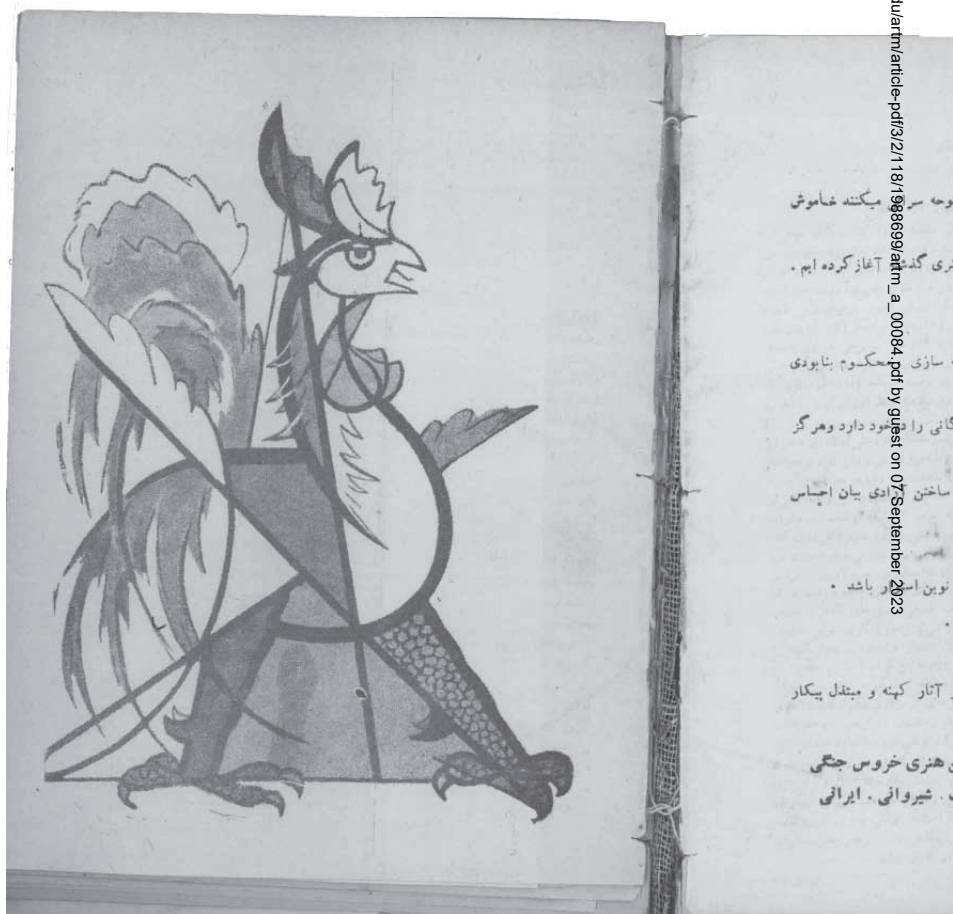 du/artm/article-pdf/3/2/118/1988699/artm_a_00084.pdf by guest on 07 September 2023
میکنند خاموش
آغاز کرده ایم .
سازی محکـوم بنابودی
خود دارد وهر گز
ساختن آزادی بیان احساس
نوین استوار باشد .
آثار کهنه و مبتذل پیکار
هنری خروس جنگی
شیروانی . ایرانی